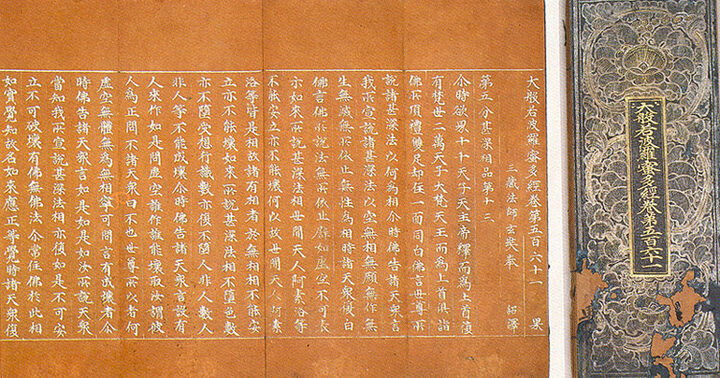 大般若波羅蜜多經卷第五百六十一
大般若波羅蜜多經卷第五百六十一　果
三藏法師玄奘奉　詔譯
第五分甚深相品第十三
尒時欲界十千天子天主帝釋而為上首復
有梵世二萬天子大梵天王而為上首俱詣
佛所頂禮雙足却住一面同白佛言世尊所
說諸甚深法以何為相尒時佛告諸天衆言
我所宣說諸甚深法以空無相無願無作無
生無滅無所依止無性為相時諸天衆復白
佛言佛所說法無所依止譬如虛空不可表
示如來所說甚深法相世間天人阿素洛等
不能安立亦不能壞何以故世間天人阿素
洛等皆是相故諸有相者於無相相不能安
立亦不能壞如來所說甚深法相不墮色數
亦不墮受想行識數亦復不墮人非人數人
非人等不能成壞尒時佛告諸天衆言設有
人來作如是問虛空誰作誰能壞耶汝謂彼
人為正問不諸天衆曰不也世尊所以者何
虛空無體無為無相寧可問言有成壞者尒
時佛告諸天衆言如是如是如汝所說天衆
當知我所宣說甚深法相亦復如是不可安
立不可破壞有佛無佛法尒常住佛於此相
如實覺知故名如來應正等覺時諸天衆復